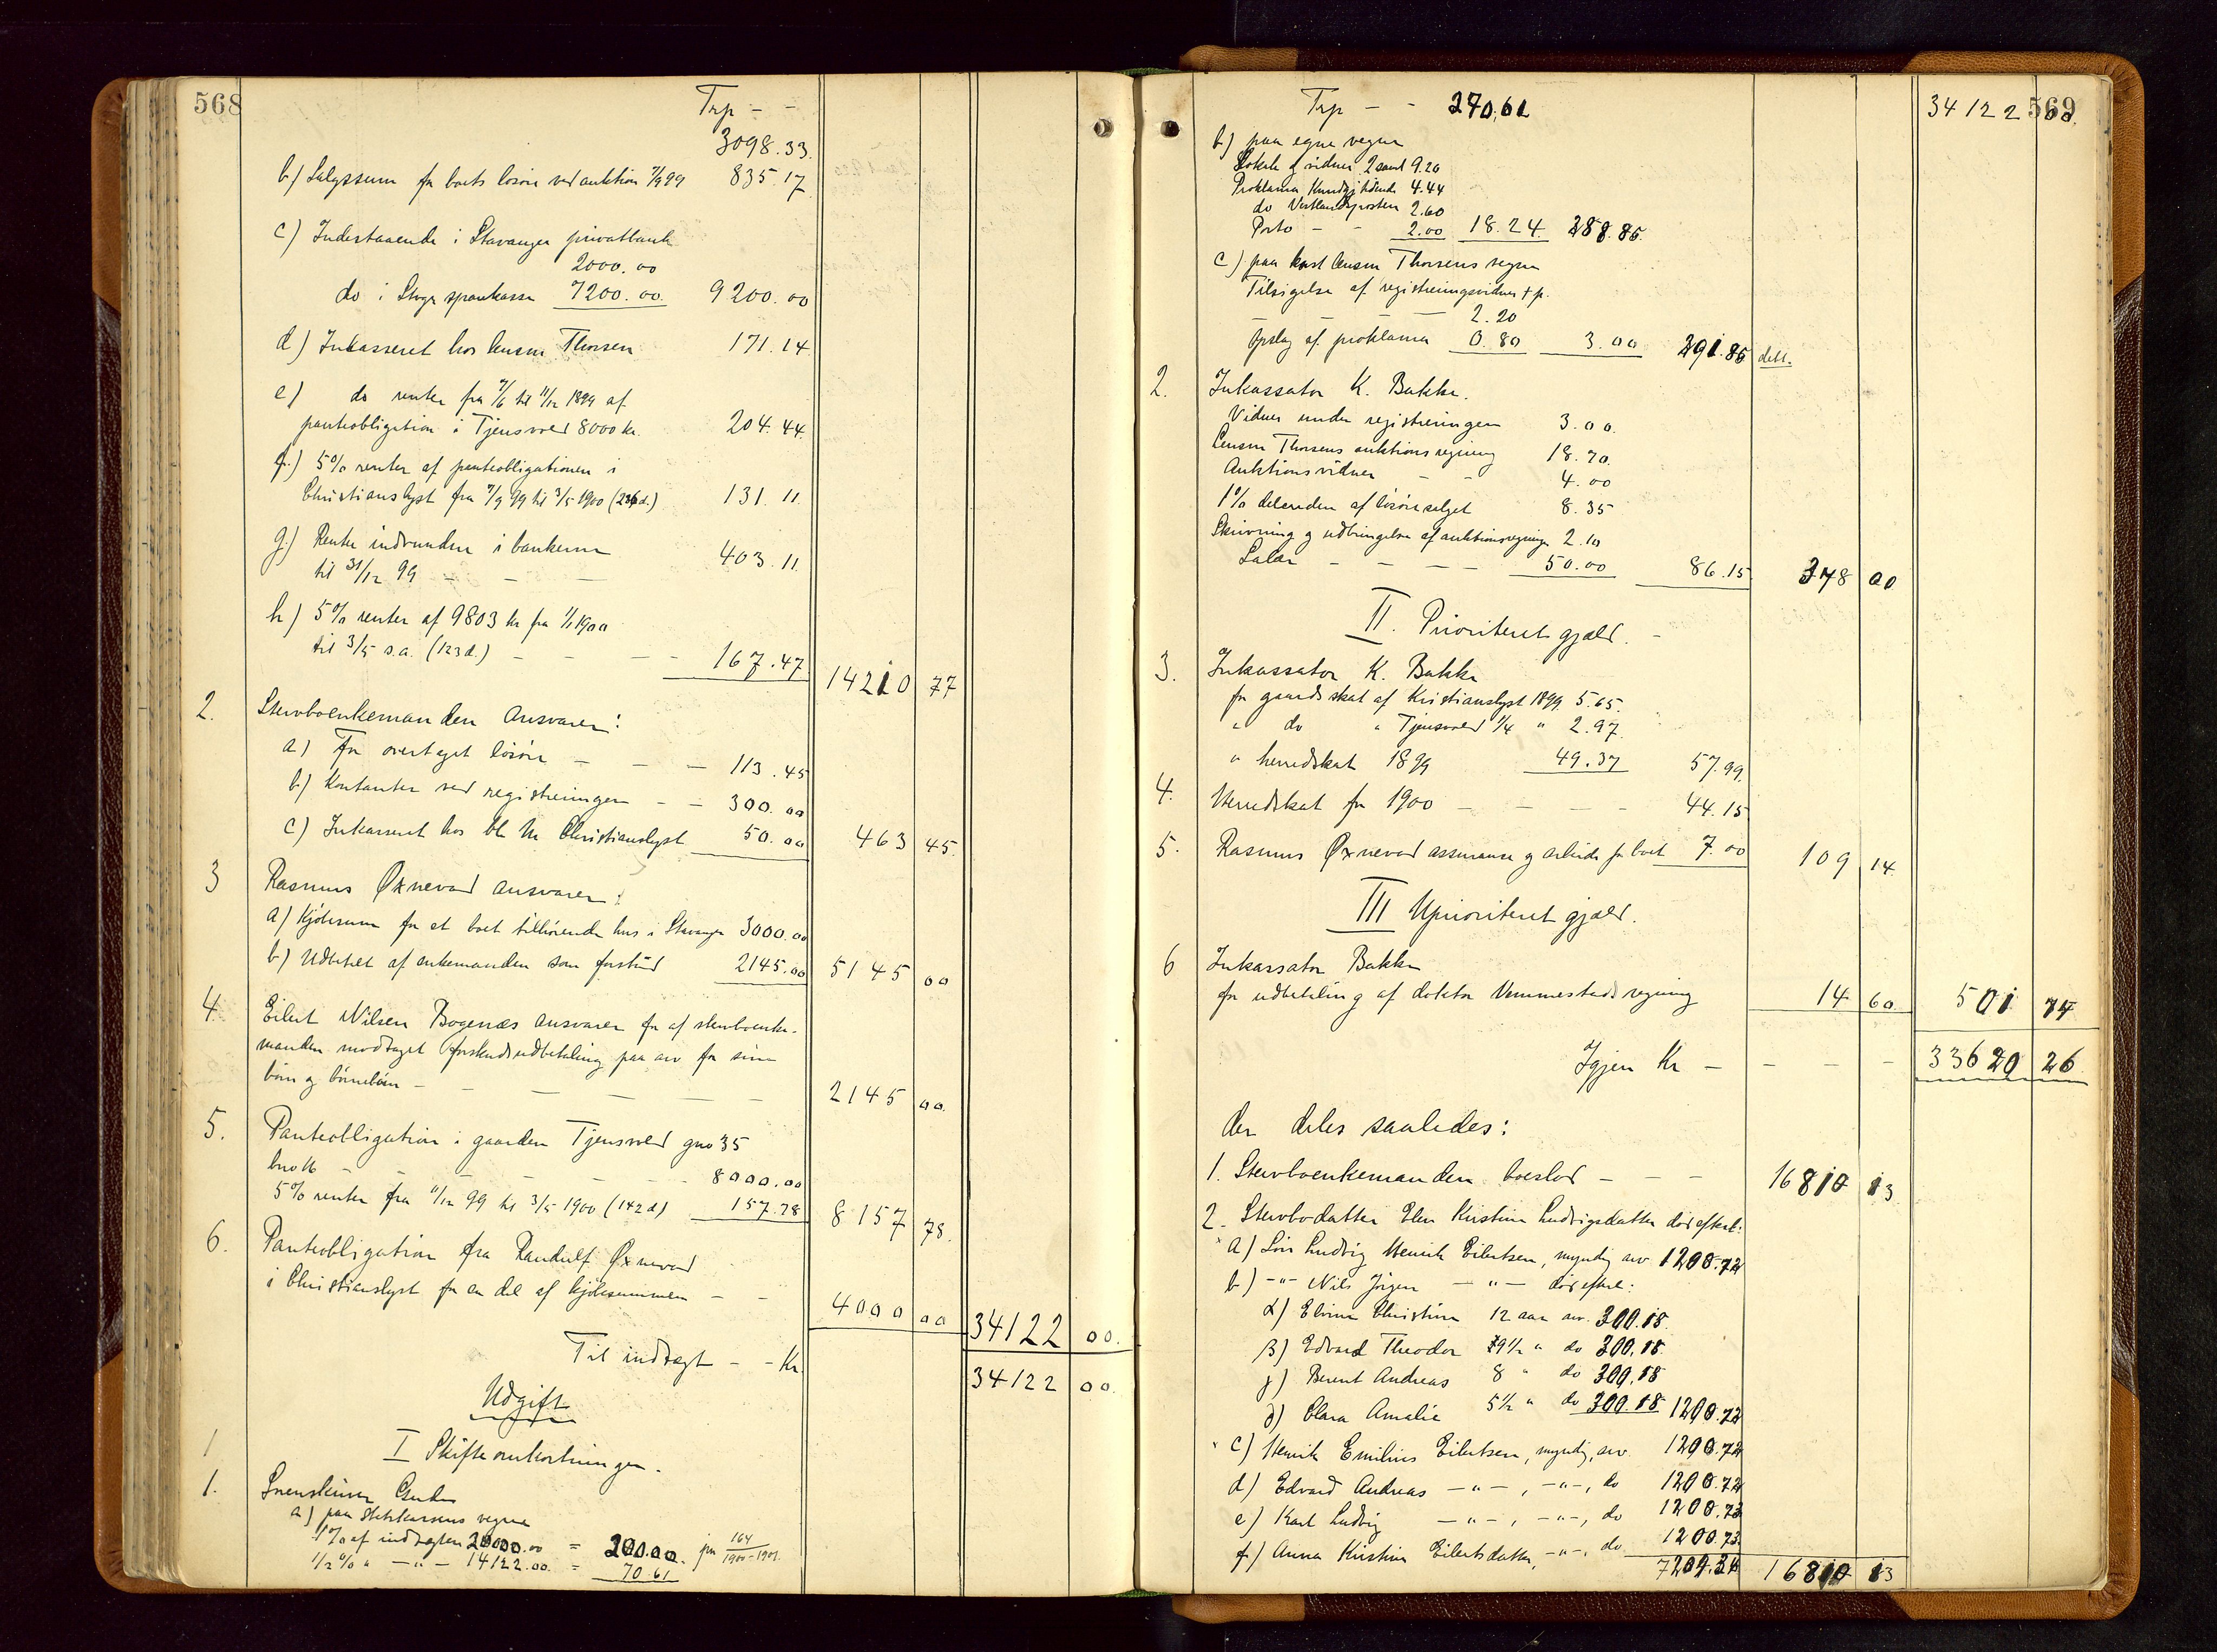 568
Trp - -
3098.33.
b) Salgssum for boets løsøre ved auktion 7/9 99 835.17
c) Indestaaende i Stavanger privatbank
2000.00
do i Stvgr sparekasse 7200.00. 9200.00
d) Inkasseret hos lensm Thorsen 171.14
e) do renter fra 7/6 til 11/12 1899 af
panteobligation i Tjensvold 8000 kr. 204.44
f.) 5% renter af panteobligationen i
Christianslyst fra 7/9 99 til 3/5 1900 (236 d.) 131.11
g.) Renter indvundne i bankerne
til 31/12 99 - - - 403.11
h) 5% renter af 9803 kr fra 1/1 1900
til 3/5 s.a. (123 d.) - - - - 167.47 14210 77
2. Stervboenkemanden ansvarer:
a) For overtaget løsøre - - - 113.45
b) Kontanter ved registreringen - - 300.00
c) Inkasseret hos Christianslyst 50.00 463 45.
3 Rasmus Øxnevad ansvarer:
a) Kjøbesum for et boet tilhørende hus i Stavanger 3000.00
b) Udbetalt af enkemanden som forskud 2145.00 5145 00
4. Eilert Nilsen Bogenæs ansvarer for af stervboenke-
manden modtaget forskudsudbetaling paa arv for sine
børn og børnebørn - - - - - 2145 00.
5. Panteobligation i gaarden Tjensvold gno 35
bno 16 - - - - - 8000.00
5% renter fra 11/12 99 til 3/5 1900 (142 d) 157.78 8157 78.
6. Panteobligation fra Randulf Øxnevad
i Christianslyst for en del af kjøbesummen - - 4000 00 34122 00.
Til indtægt - - Kr. 34122 00.
Udgift
1 I Skifteomkostninger.
1. Sorenskriver
a) paa Statskassens vegne
1% af indtægten 20000.00 = 200.00. jfr 164/1900-1901.
1/2% " -"- 14122.00. = 70.61
569
Trp - - 270.61 34122 00.
b) paa egne vegne
Lokale og vidner 2 saml 9.20
Proklama Kundgj tidende 4.44
do Vestlandsposten 2.60
Porto - - 2.00 18.24. 288.85.
c) paa lensm Thorsens vegne
Tilsigelse af registreringsvidner + p.
- - - 2.20
Opslag af proklama 0.80 3.00 291.85 dett.
2. Inkassator K. Bakke.
Vidner under registreringen 3.00.
Lensm Thorsens auktionsregning 18.70.
Auktionsvidner - - 4.00
1% delcredere af løsøresalget 8.35
Skrivning og udbringelse af auktionsregninger 2.10
Salær - - - - 50.00 86.15 378 00
II. Prioriteret gjæld. -
3. Inkassator K. Bakke
for gaardsskat af Kristianslyst 1899 5.65.
" do " Tjensvold 1/4 " 2.97.
" herredskat 1899 49.37 57.99.
4. Herredskat for 1900 - - - - 44.15
5. Rasmus Øxnevad assurance og arbeide for boet 7.00 109 14.
III Uprioriteret gjæld.
6 Inkassator Bakke
for udbetaling af doktor Vemmestads regning 14 60. 501 74
Igjen Kr - - - - 33620 26
der deles saaledes:
1. Stervboenkemanden boeslod - - - 16810 13
2. Stervbodatter Elen Kristine Ludvigsdatter død efterl:
a) Søn Ludvig Henrik Eilertsen, myndig arv 1200.72
b) -"- Nils Jørgen -"- død efterl:
α) Elvine Christine 12 aar arv. 300.18.
β) Edvard Theodor 9 1/2 " do 300.18
γ) Berent Andreas 8 " do 300.18
δ) Clara Amalie 5 1/2 " do 300.18 1200.72
c) Henrik Emilius Eilertsen, myndig, arv. 1200.72
d) Edvard Andreas -"-, -"-, do 1200.72
e) Karl Ludvig -"-, -"-, do 1200.73
f) Anna Kristine Eilertsdatter, -"-, do 1200.73.
7204.34 16810 13